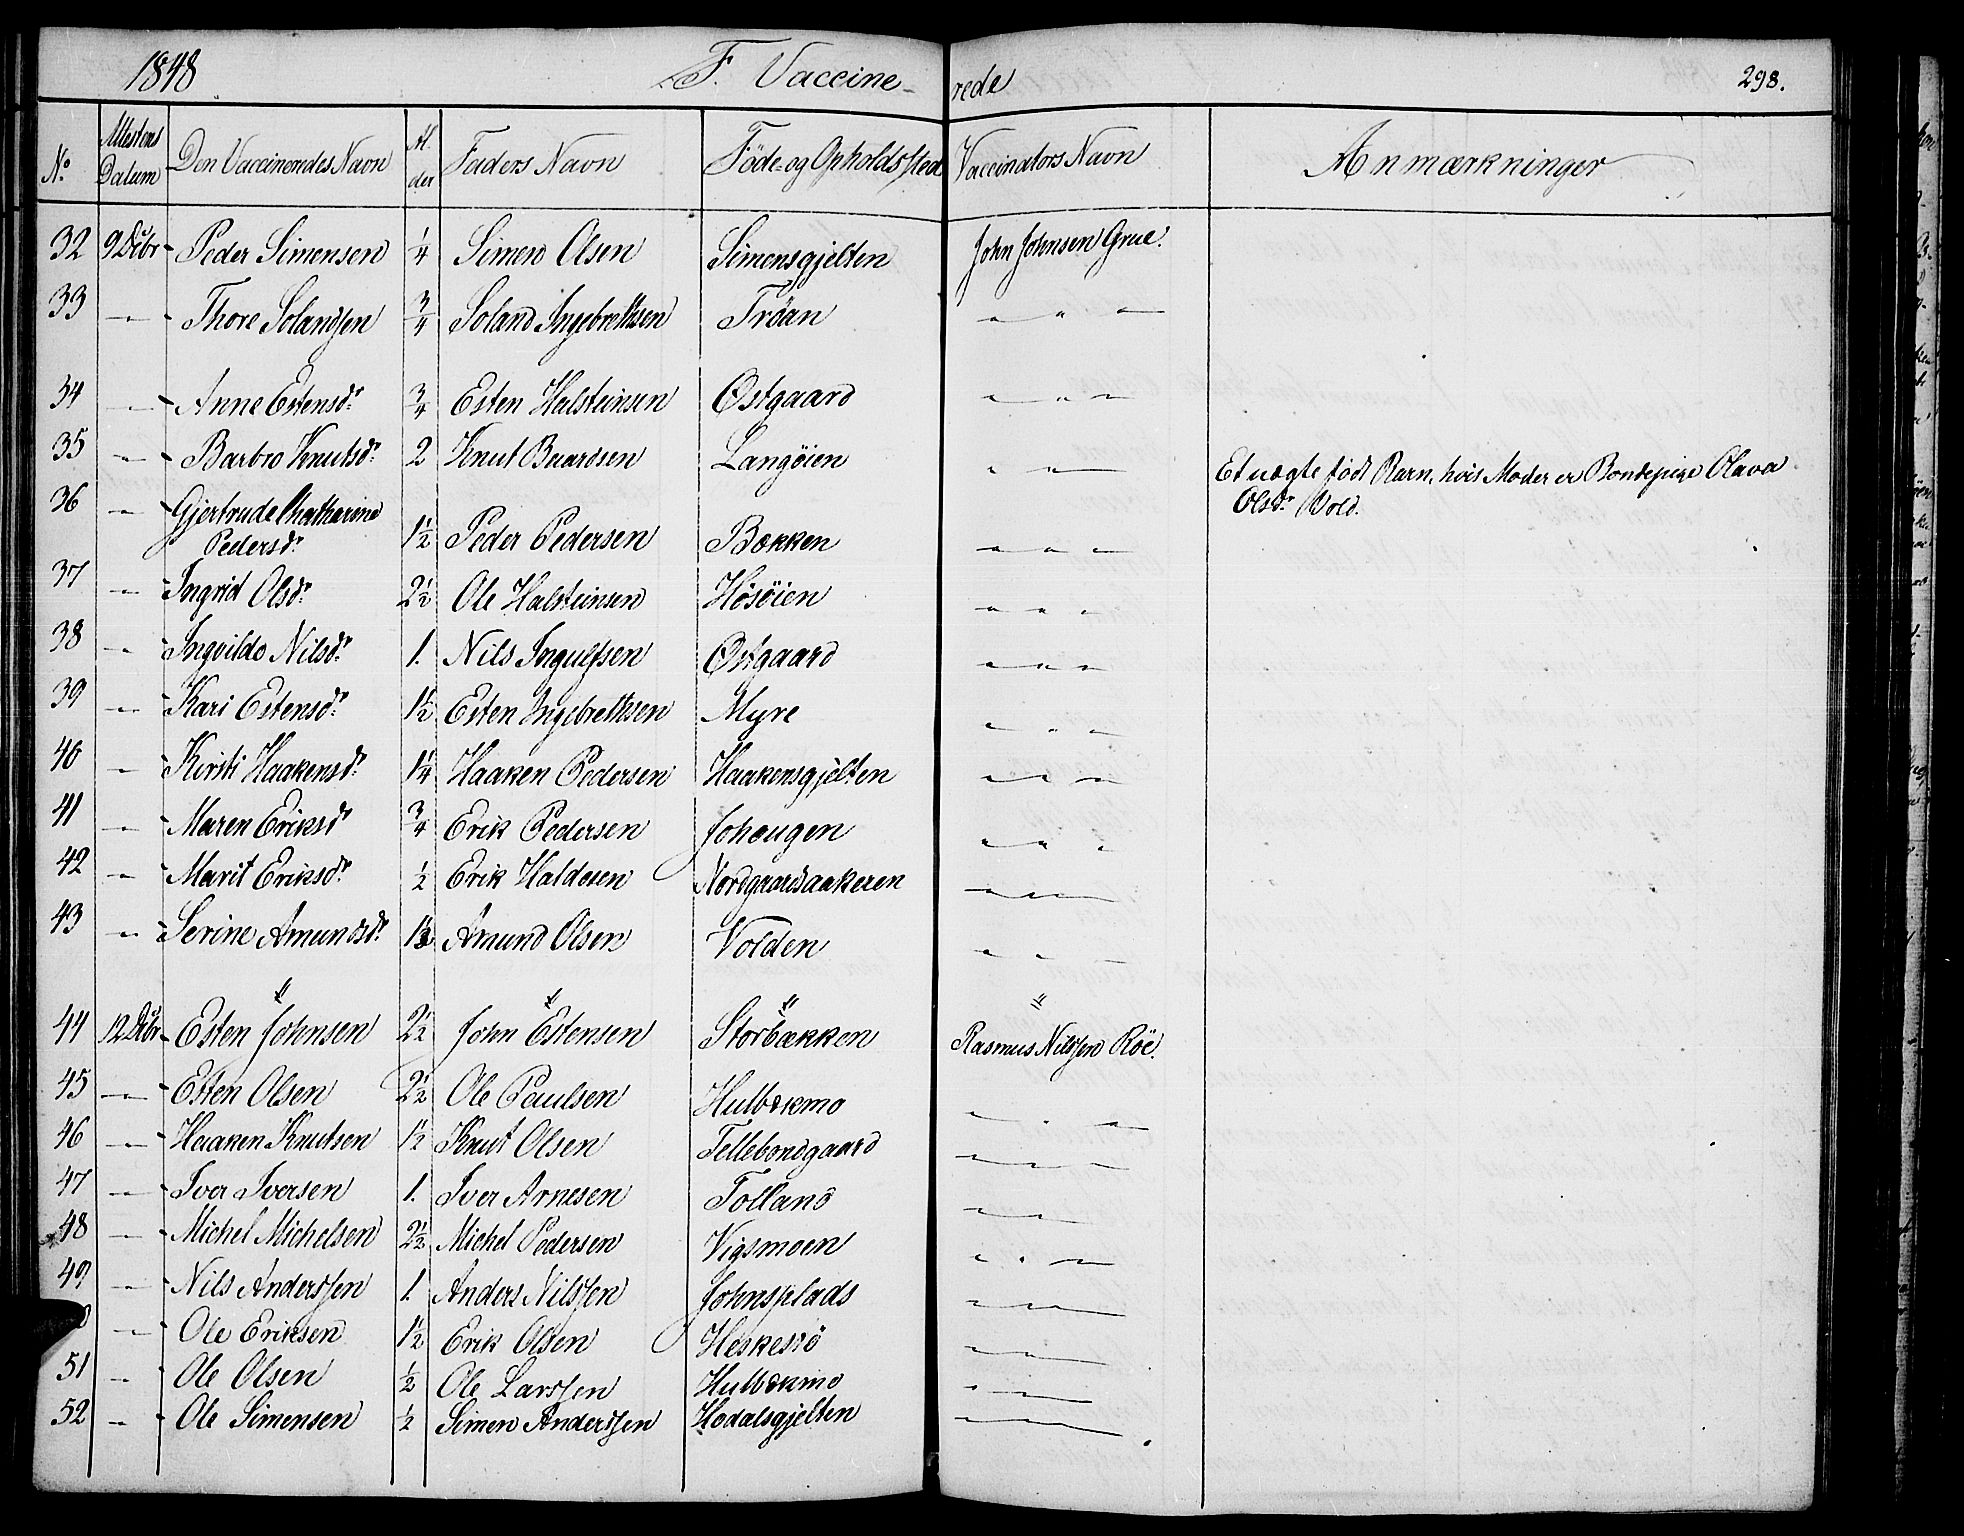 1848 F. Vaccine- rede 298.
No. Attestens Datum Den Vaccineredes Navn Alder Faders Navn Föde- og Opholdssted Vaccinators Navn Anmærkninger
32 9 Dcbr Peder Simensen 1/4 Simen Olsen Simensgjelten John Johnsen Grue.
33 " Thore Solandsen 3/4 Soland Ingebrethsen Tröan " " "
34 " Anne Estensdr 3/4 Esten Halsteinsen Østgaard " " "
35 " Barbro Knutsdr 2 Knut Baardsen Langöien " " Et uægte född Barn, hvis Moder er Bondepige Olava
Olsdr Vold.
36 " Gjertrude Chatharine
Pedersdr 1 1/2 Peder Pedersen Bækken " " "
37 " Ingrid Olsdr 2 1/2 Ole Halsteinsen Hösöien " " "
38 " Ingvildo Nilsdr 1. Nils Ingulfsen Østgaard " " "
39 " Kari Estensdr 1 1/2 Esten Ingebrethsen Myre " " "
40 " Kirsti Haakensdr 1 1/4 Haaken Pedersen Haakensgjelten " " "
41 " Maren Eriksdr 3/4 Erik Pedersen Johaugen " " "
42 " Marit Eriksdr 1/2 Erik Haldosen Nordgaardsaakeren " " "
43 " Serine Amundsdr Amund Olsen Volden " " "
" " " "
44 12 Dcbr Esten Johnsen 2 1/2 John Estensen Storbækken Rasmus Nilssen Röe.
45 " Esten Olsen 2 1/2 Ole Paulsen Hulbækmo " " "
46 " Haaken Knutsen 1 1/2 Knut Olsen Tellebondgaard " " "
47 " Iver Iversen 1. Iver Arnesen Tolland " "
48 " Michel Michelsen 2 1/2 Michel Pedersen Vigsmoen " " "
49 " Nils Anderssen 1. Anders Nilssen Johnsplads " "
" Ole Eriksen 1 1/2 Erik Olsen " "
51 " Ole Olsen 1/2 Ole Larssen Hulbækmo " "
52 " Ole Simensen 1/2 Simen Anderssen Hodalsgjelten " "